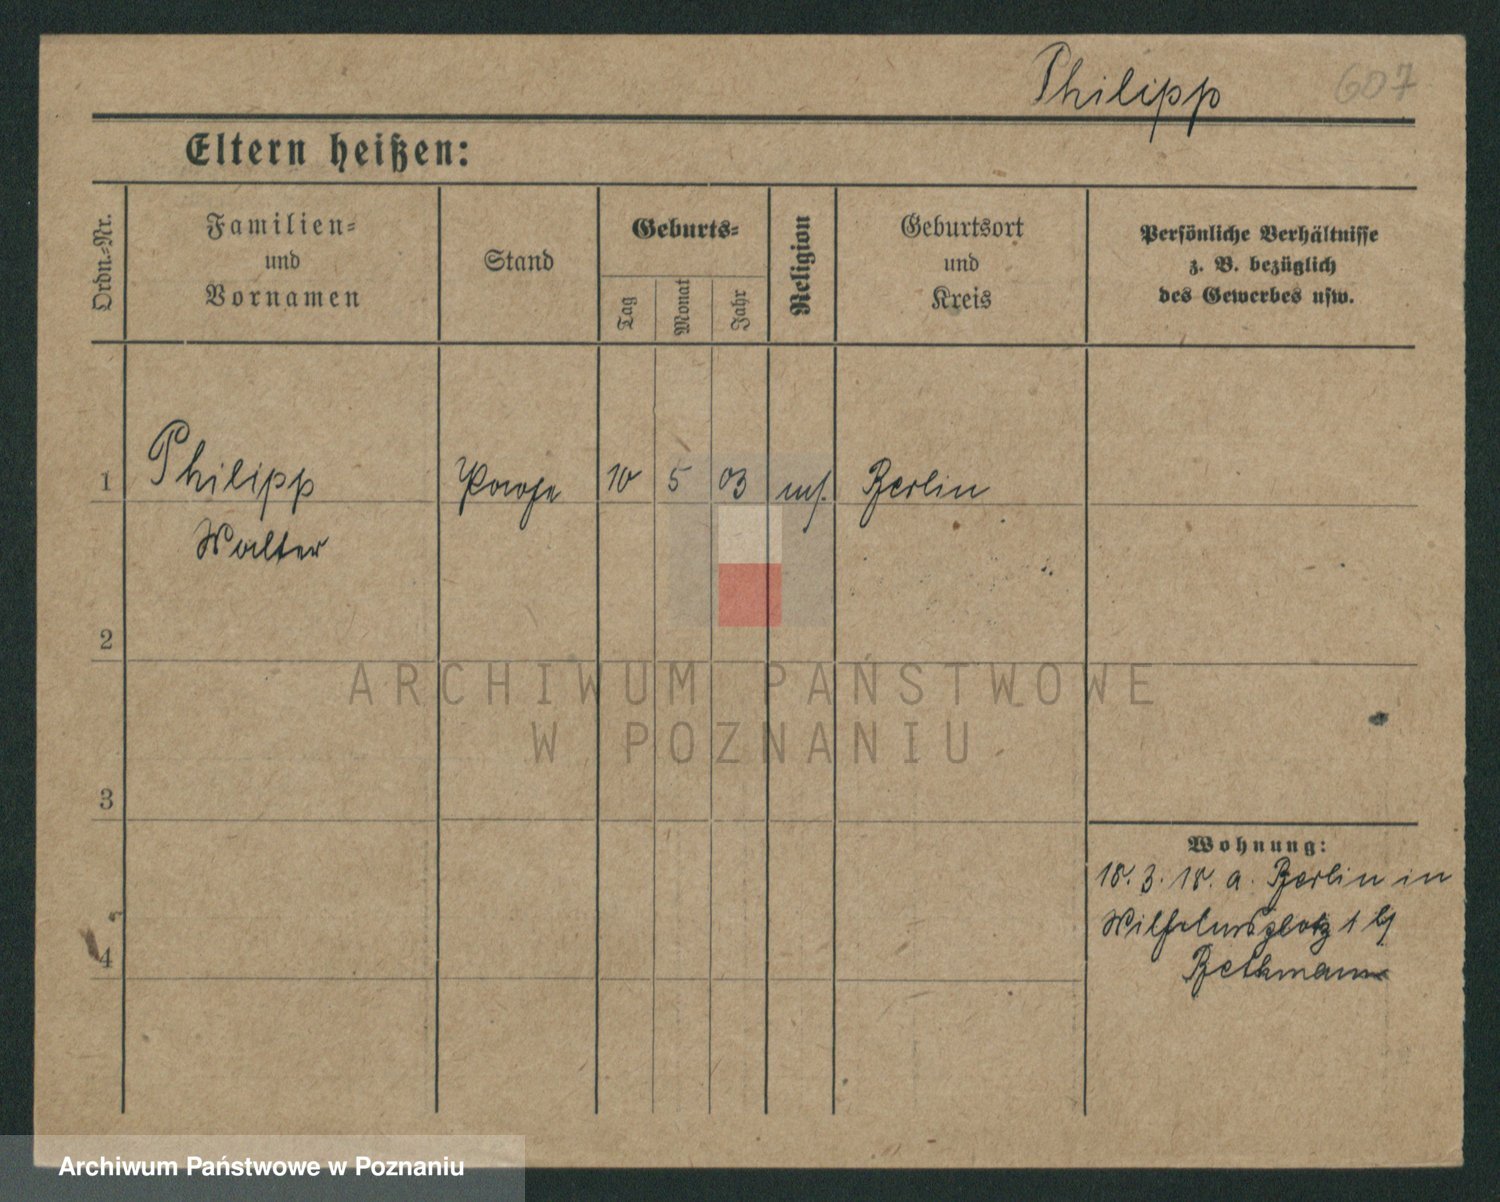 Philipp 607
Eltern heißen:
Ordn.-Nr.
Familien-
und
Vornamen
Stand
Geburts-
Tag
Monat
Jahr
Religion
Geburtsort
und
Kreis
Persönliche Verhältnisse
z. B. bezüglich
des Gewerbes usw.
1 Philipp 10 5 03 Berlin
Walter
2
ARCHIWUM PAŃSTWOWE
W POZNANIU
3
Wohnung:
18. 3. 18. a. Berlin in
Wilhelmsplatz 1 bj
4 Bethmann
Archiwum Państwowe w Poznaniu